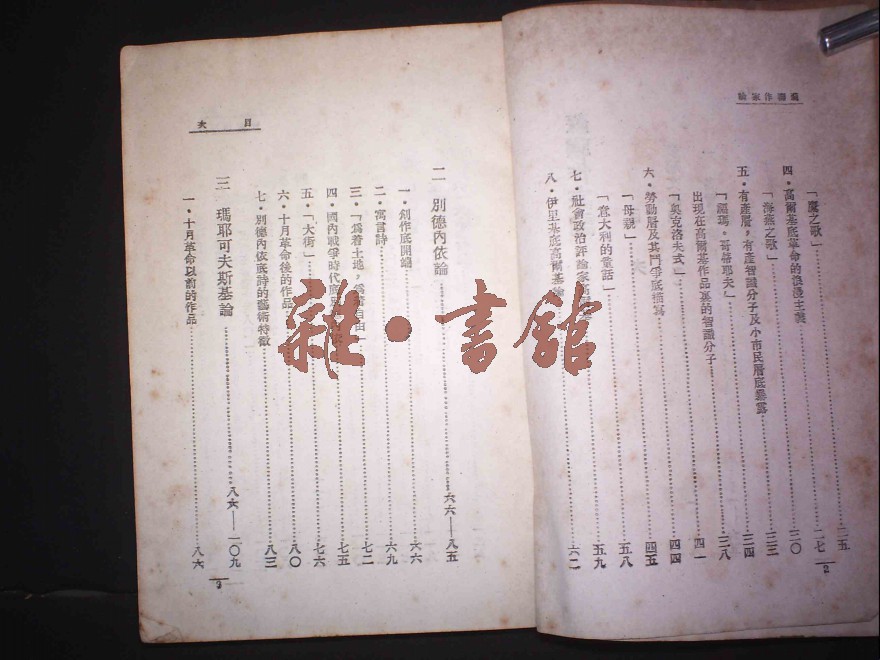 蘇聯作家論
「鷹之歌」 二五
四・高爾基底革命的浪漫主義 二七
「海燕之歌」 三〇
五・有產層,有產智識分子及小市民層底暴露 三三
「福瑪・哥蒂耶夫」 三四
出現在高爾基作品裏的智識分子 三八
「奧克洛夫式」 四一
六・勞動層及其鬥爭底描寫 四四
「母親」 四五
「意大利的童話」 五八
七・社會政治評論家 五九
八・伊里基底高爾基論 六二
2
目次
二 別德內依論 六六—八五
一・創作底開端 六六
二・寓言詩 六九
三・「爲着土地,爲着自由」 七二
四・國內戰爭時代底 七五
五・「大街」 七六
六・十月革命後的作品 八〇
七・別德內依底詩的藝術特徵 八三
三 瑪耶可夫斯基論 八六—一〇九
一・十月革命以前的作品 八六
3
雜・書館